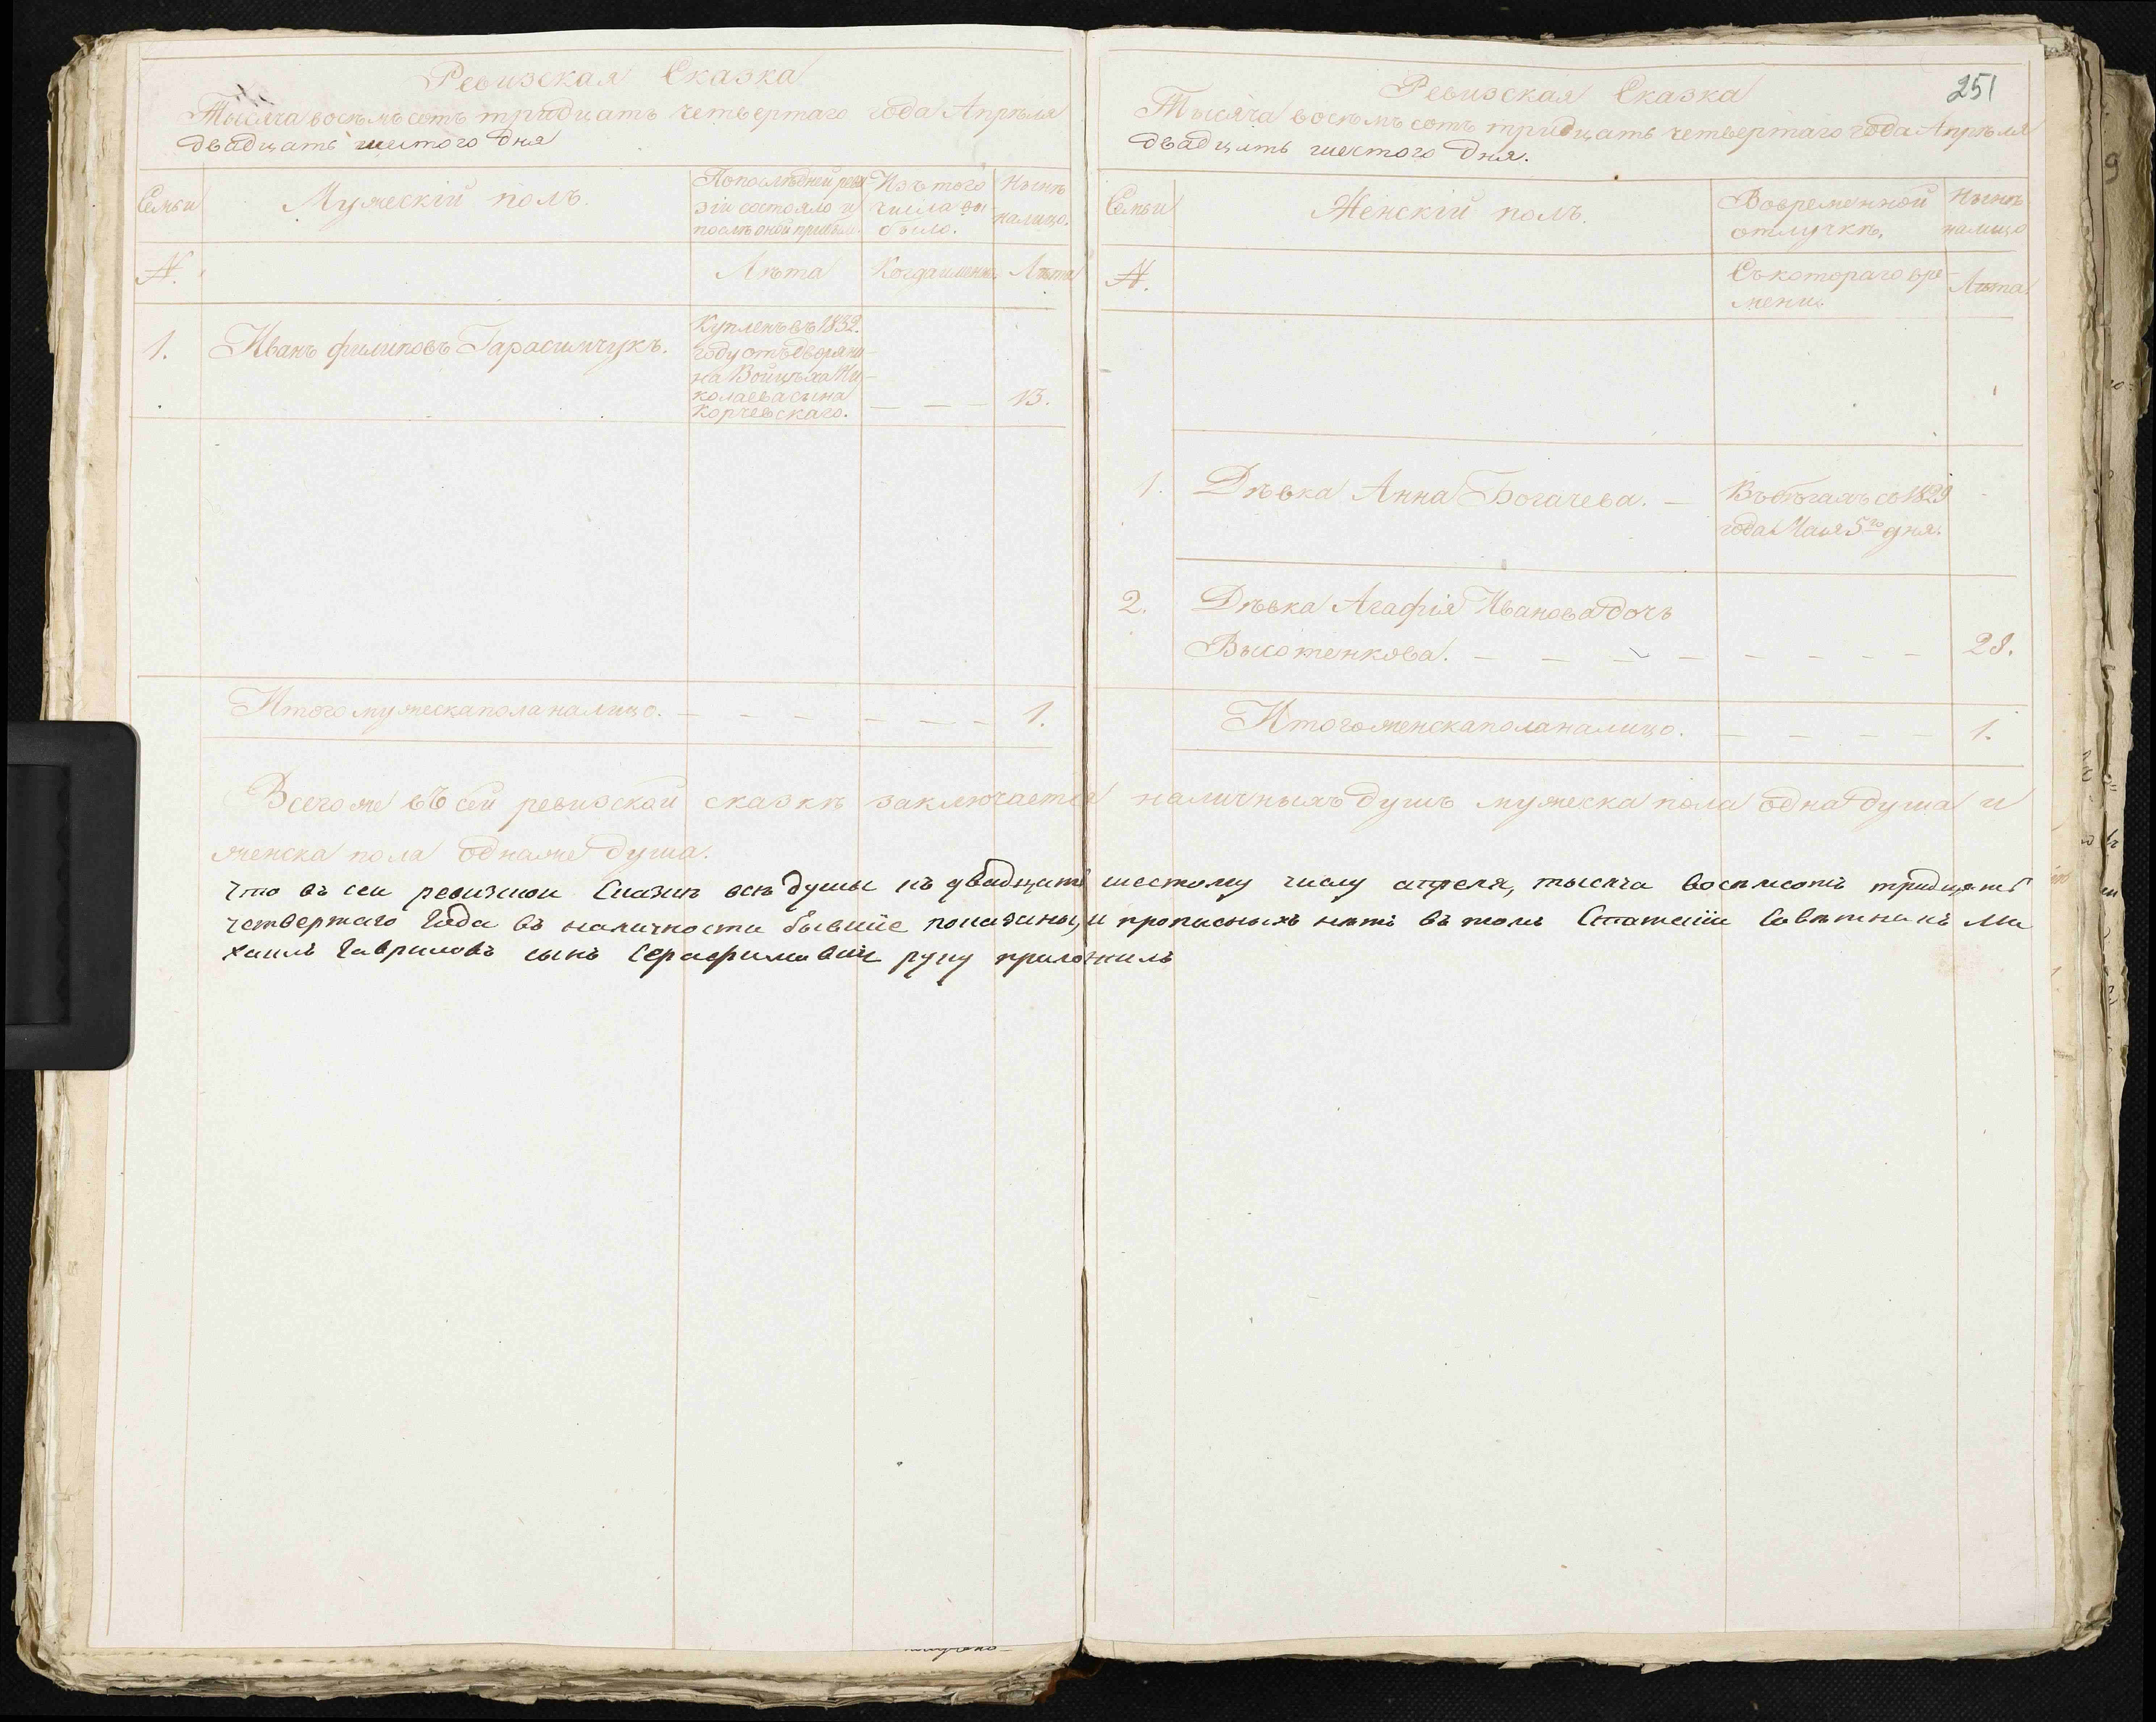 Ревизская Сказка
Тысяча восемъ сотъ тридцать четвертаго года Апрѣля
двадцать шестого дня
Семьи
Мужескій полъ.
По послѣдней реви
зіи состояло и
послѣ оной прибыло.
Изъ того
числа вы-
было.
Нынѣ
налицо.
№.
Лѣта
Когда именно
Лѣта
1.
Иванъ филиповъ Гарасимчукъ.
Купленъ въ 1832.
году отъ дворяни-
на Войцѣха Ни-
колаева сына
Корчевскаго.
— — —
13.
Итого мужеска пола налицо. — — — — — — — 1.
251
Ревизская Сказка
Тысяча восемъ сотъ тридцать четвертаго года Апрѣля
двадцать шестого дня.
Семьи
Женскій полъ.
Во временной
отлучкѣ.
Нынѣ
налицо
№.
Съ котораго вре-
мени
Лѣта.
1. Дѣвка Анна Богачева. —
Въ бѣгахъ съ 1829
года Мая 5го дня.
2. Дѣвка Агафія Иванова дочь
Высотенкова. — — — — — — — — — 28.
Итого женска пола налицо. — — — — — 1.
Всего же въ сей ревизской сказкѣ заключается наличныхъ душъ мужеска пола одна душа и
женска пола одна же душа.
Что въ сей ревизской Сказкѣ всѣ души къ двадцать шестому числу апреля, тысяча восемсотъ тридцать
четвертаго Года въ наличности бывшіе показаны, и прописныхъ нѣтъ въ томъ Статскій Совѣтникъ Ми
хаилъ Гавриловъ сынъ Серафимовичь руку приложилъ